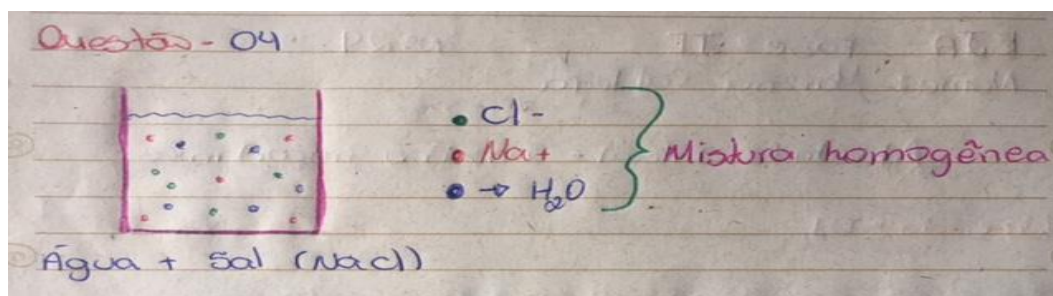 Questão - 04
Cl-
Na+
→ H₂O
Mistura homogênea
Água + Sal (NaCl)